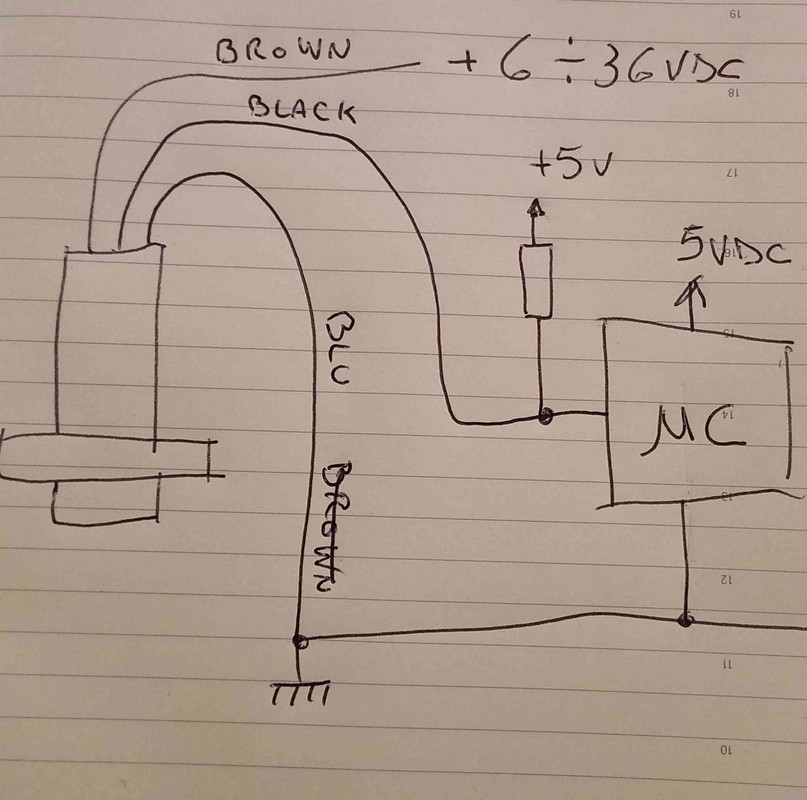 BROWN
+ 6 ÷ 36 VDC
BLACK
+5V
5VDC
BLU
BROWN
μC
19
18
17
16
15
14
13
12
11
10